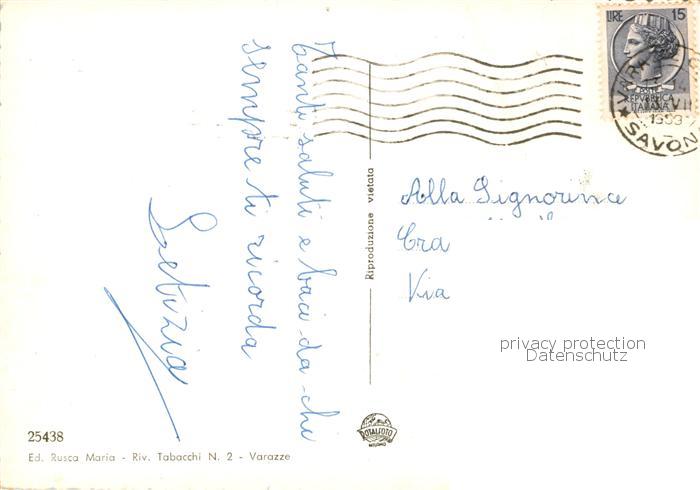 LIRE 15
POSTE
REPVBBLICA
ITALIANA
SAVON
Tanti saluti e baci da chi
sempre ti ricorda
Laetizia
Riproduzione vietata
Alla Signorina
Via
privacy protection
Datenschutz
25438
Ed. Rusca Maria - Riv. Tabacchi N. 2 - Varazze
TOTALFOTO
MILANO